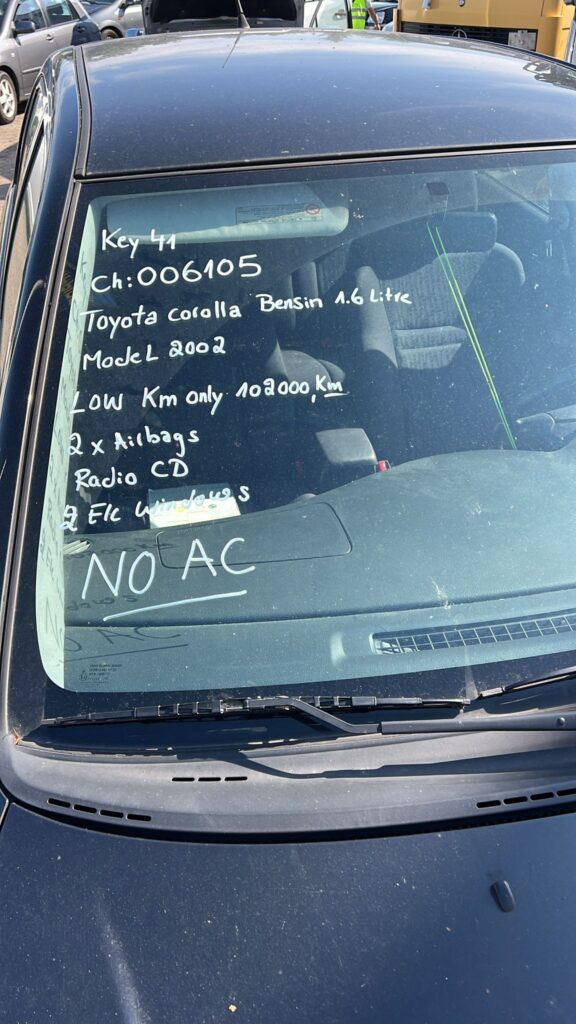 Key 41
Ch: 006105
Toyota corolla Bensin 1.6 Litre
Model 2002
Low Km only 102000,Km
2 x Airbags
Radio CD
2 Elc Windows
NO AC